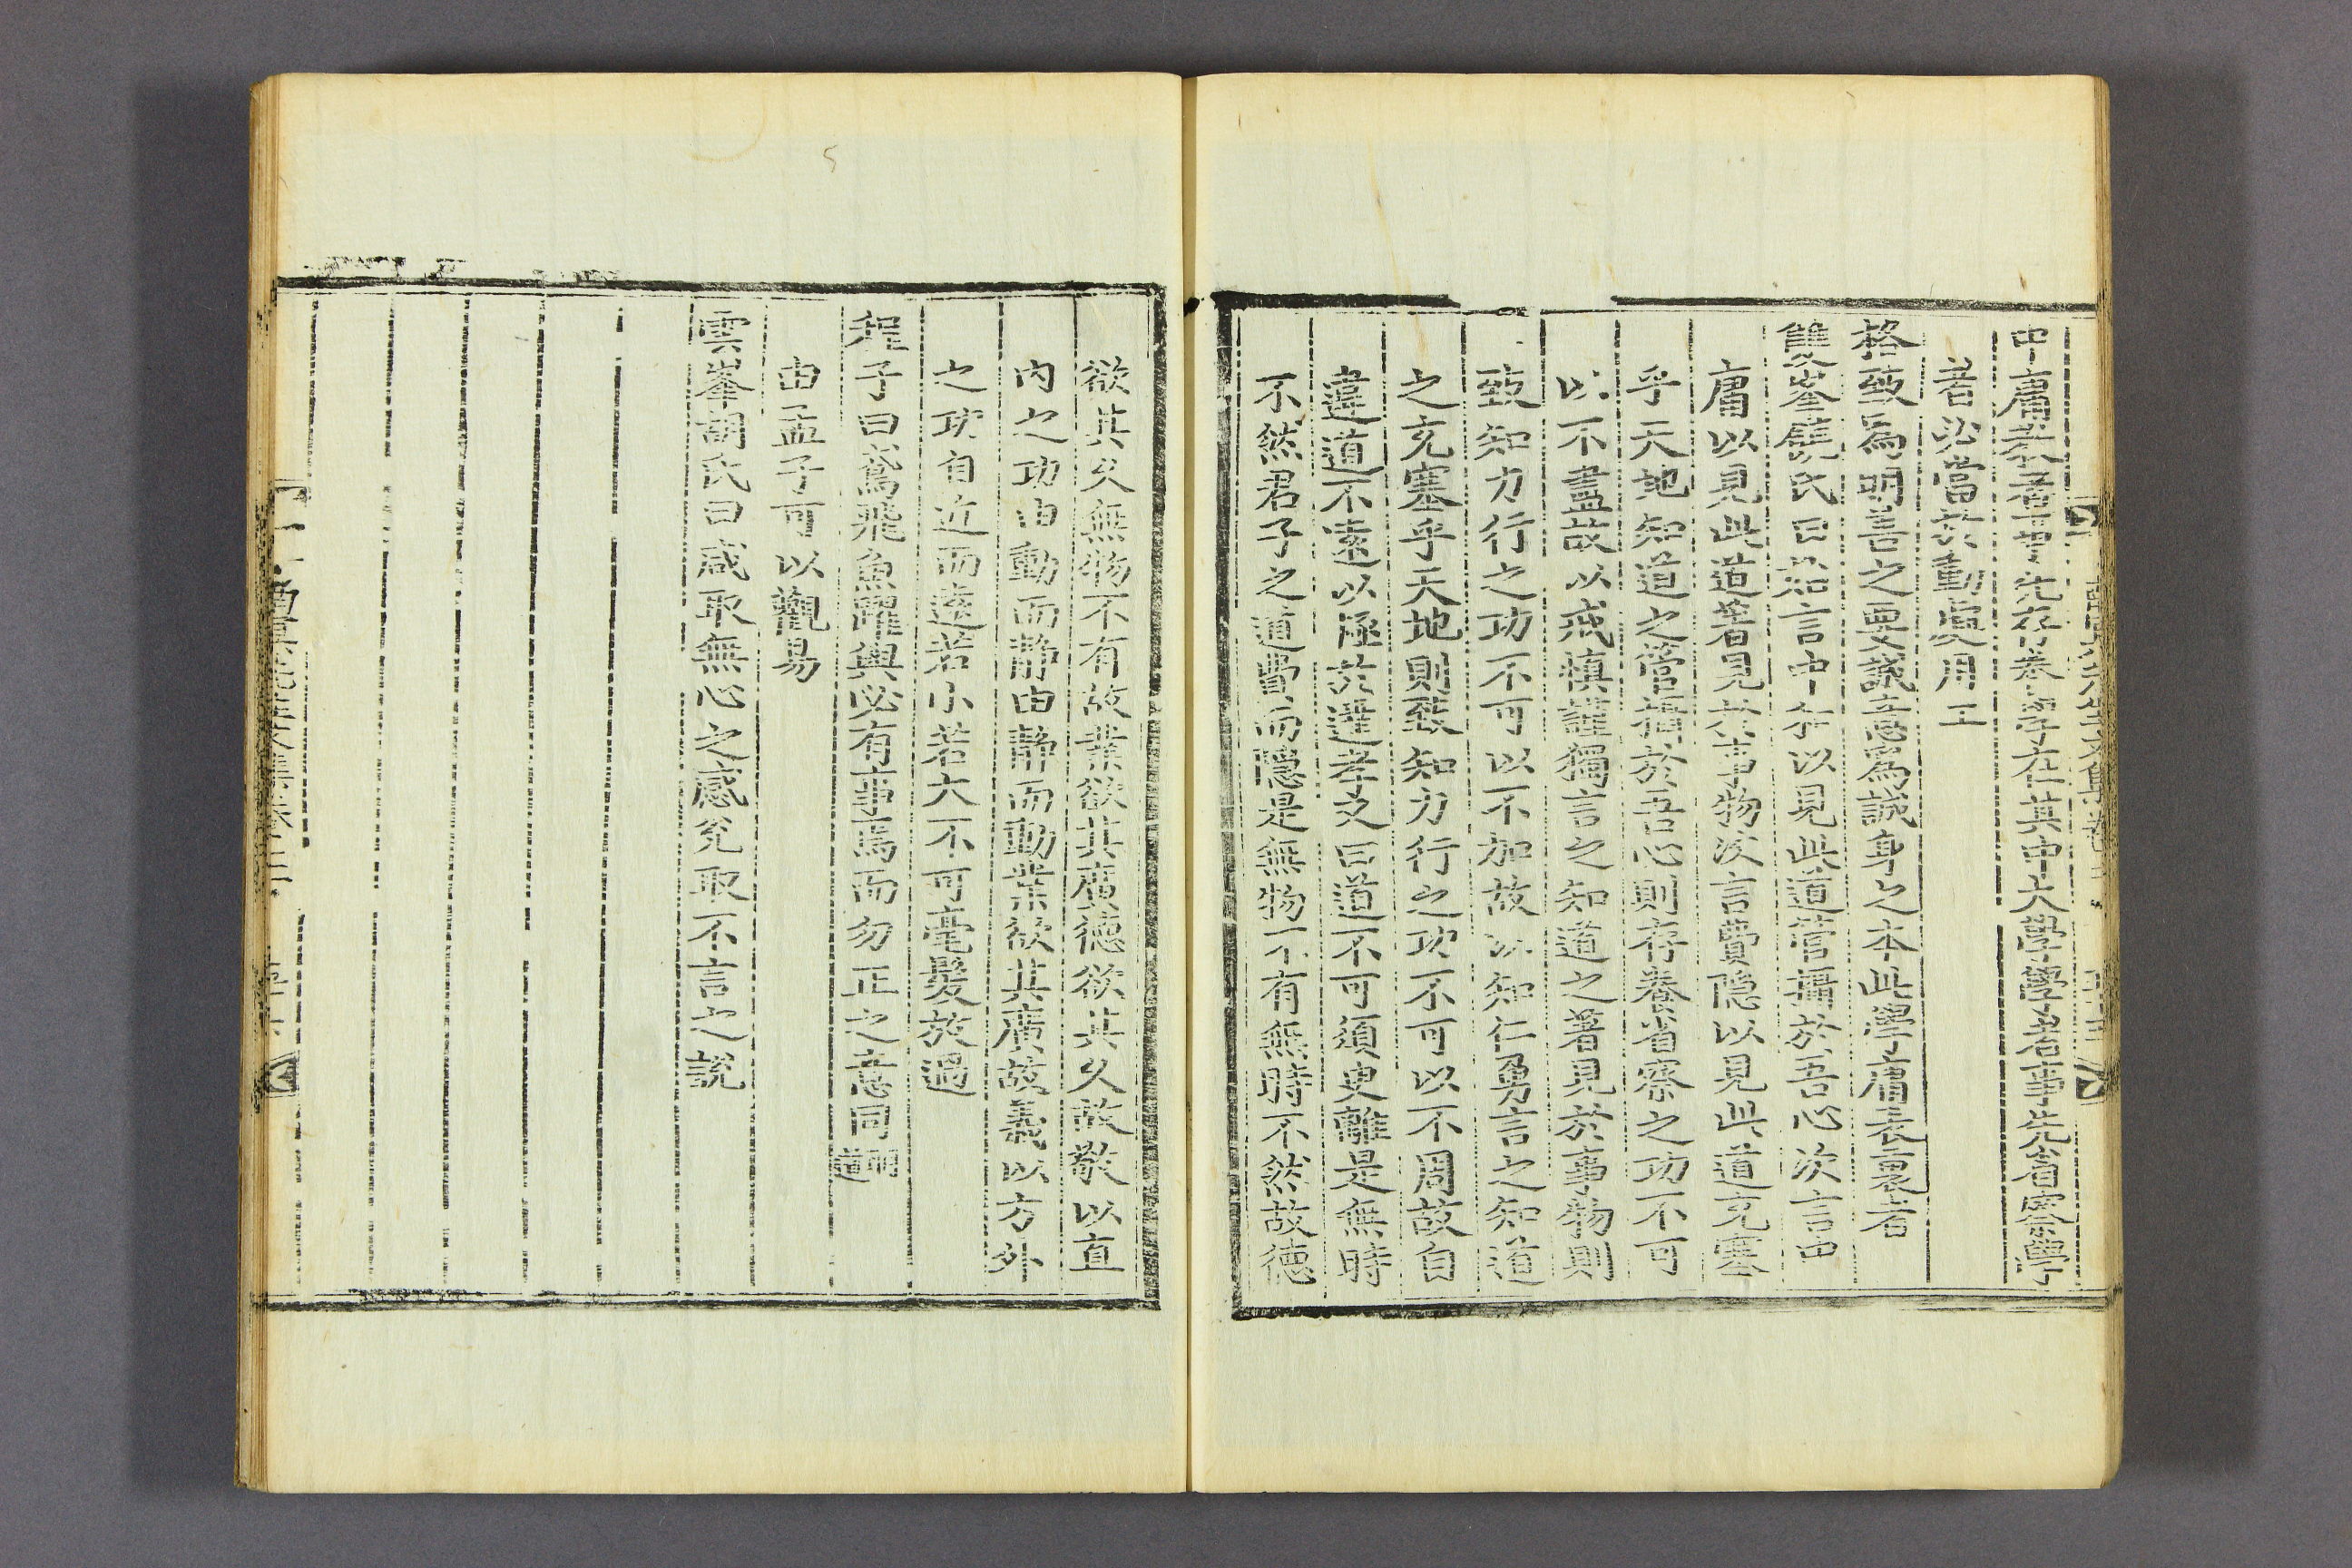 中庸教學者事先存養學在其中大學學者事先省察學
者必當於動處用工
格致爲明善之要誠意爲誠身之本此學庸表裏者
雙峯饒氏曰始言中和以見此道管攝於吾心次言中
庸以見此道著見於事物次言費隱以見此道充塞
乎天地知道之管攝於吾心則存養省察之功不可
以不盡故以戒愼謹獨言之知道之著見於事物則
致知力行之功不可以不加故以知仁勇言之知道
之充塞乎天地則致知力行之功不可以不周故自
違道不遠以極於達孝又曰道不可須臾離是無時
不然君子之道費而隱是無物不有無時不然故德
欲其久無物不有故業欲其廣德欲其久故敬以直
內之功由動而靜由靜而動業欲其廣故義以方外
之功自近而遠若小若大不可毫髮放過
程子曰鳶飛魚躍與必有事焉而勿正之意同
由孟子可以觀易
雲峯胡氏曰咸取無心之感兌取不言之說